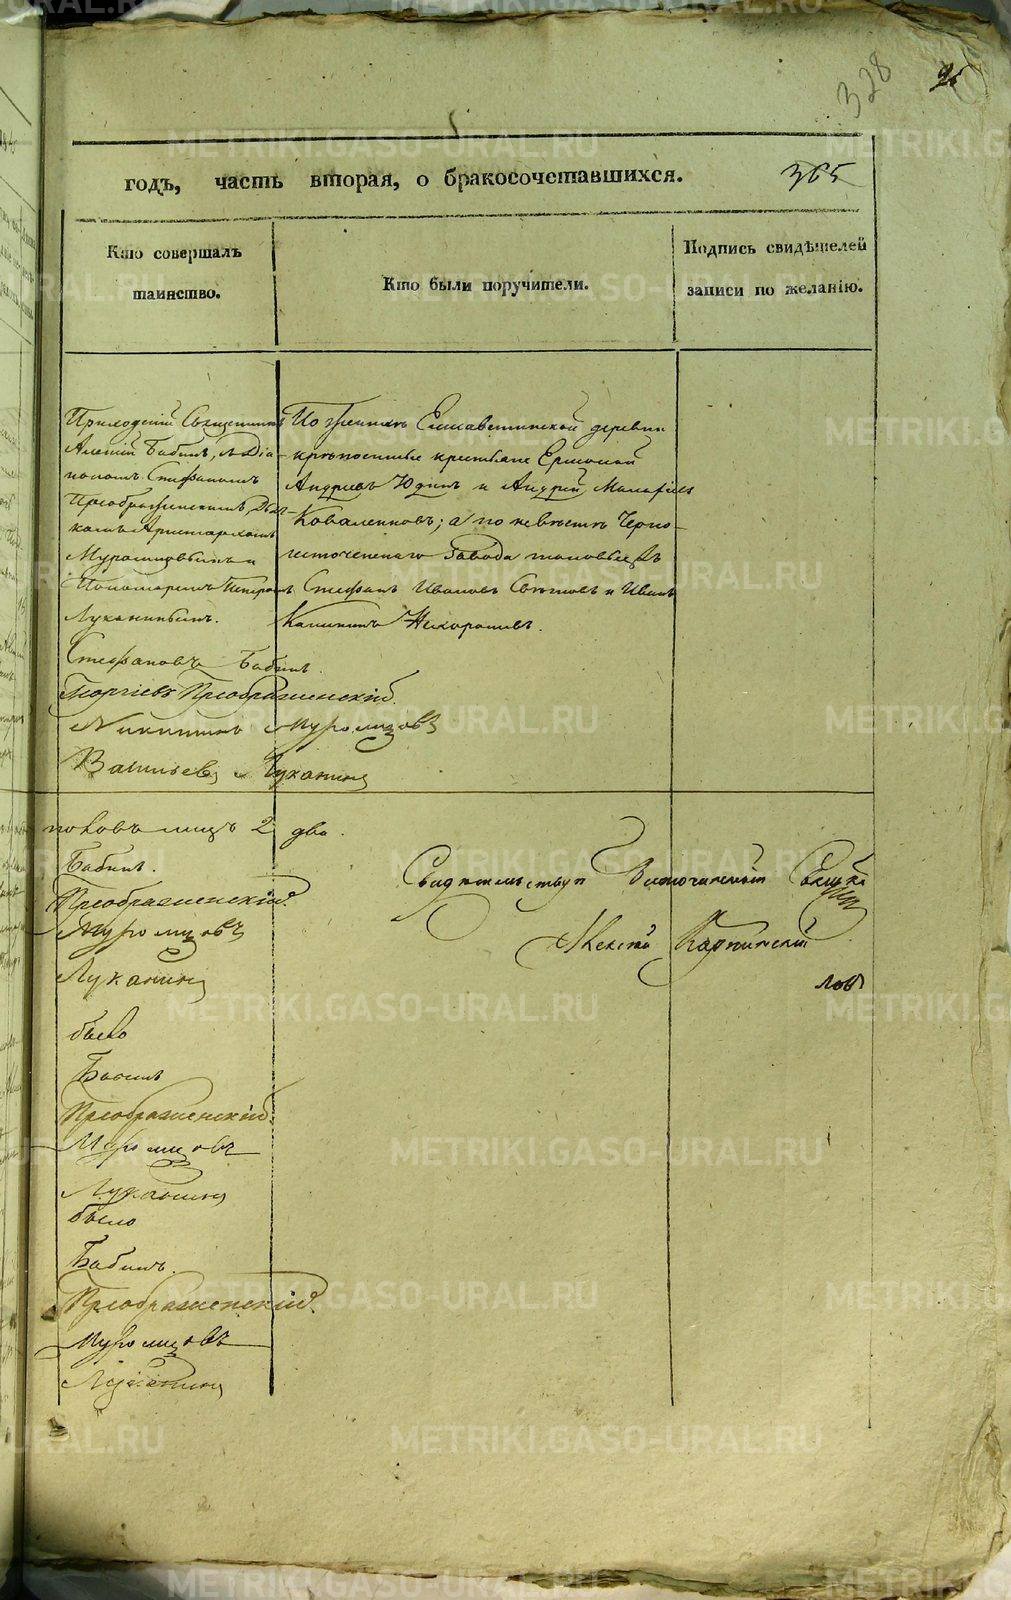 328
365
годъ, часть вторая, о бракосочетавшихся.
Кто совершалъ
таинство.
Кто были поручители.
Подпись свидѣтелей
записи по желанію.
Приходскій Священникъ
Алексій Бабинъ, съ Діа-
кономъ Стефаномъ
Преображенскимъ, Дьяч-
комъ Аристархомъ
Муромцовымъ и
Пономаремъ Петромъ
Луканинымъ.
По женихѣ Елисаветинской деревни
крѣпостные крестьяне Ермолай
Андреевъ Юдинъ и Андрей
Коваленковъ; а по невѣстѣ Черно-
источенскаго Завода
Стефанъ Ивановъ и Иванъ
Калининъ Нехорошевъ.
Стефановъ Бабинъ.
Георгіевъ Преображенскій.
Никитинъ Муромцовъ
Васильевъ Луканинъ
лицъ 2 два.
Бабинъ.
Преображенскій.
Муромцовъ
Луканинъ
было
Бабинъ
Преображенскій.
Муромцовъ
Луканинъ
было
Бабинъ.
Преображенскій.
Муромцовъ
Луканинъ
Свидѣтельствуя
Алексѣй Карпинскій
METRIKI.GASO-URAL.RU